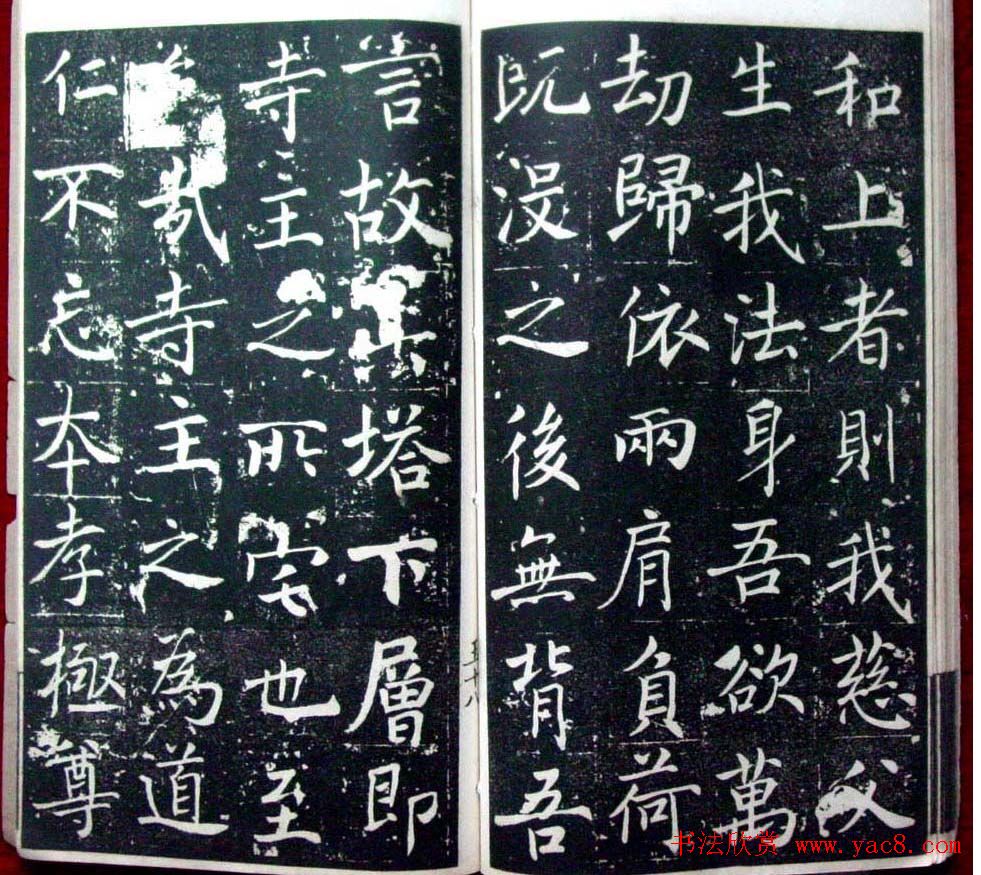 和上者則我慈父
生我法身吾欲萬
劫歸依兩肩負荷
既沒之後無背吾
言故塔下層即
寺主之所宅也至
哉寺主之為道
仁不忘本孝極尊
书法欣赏 www.yac8.com